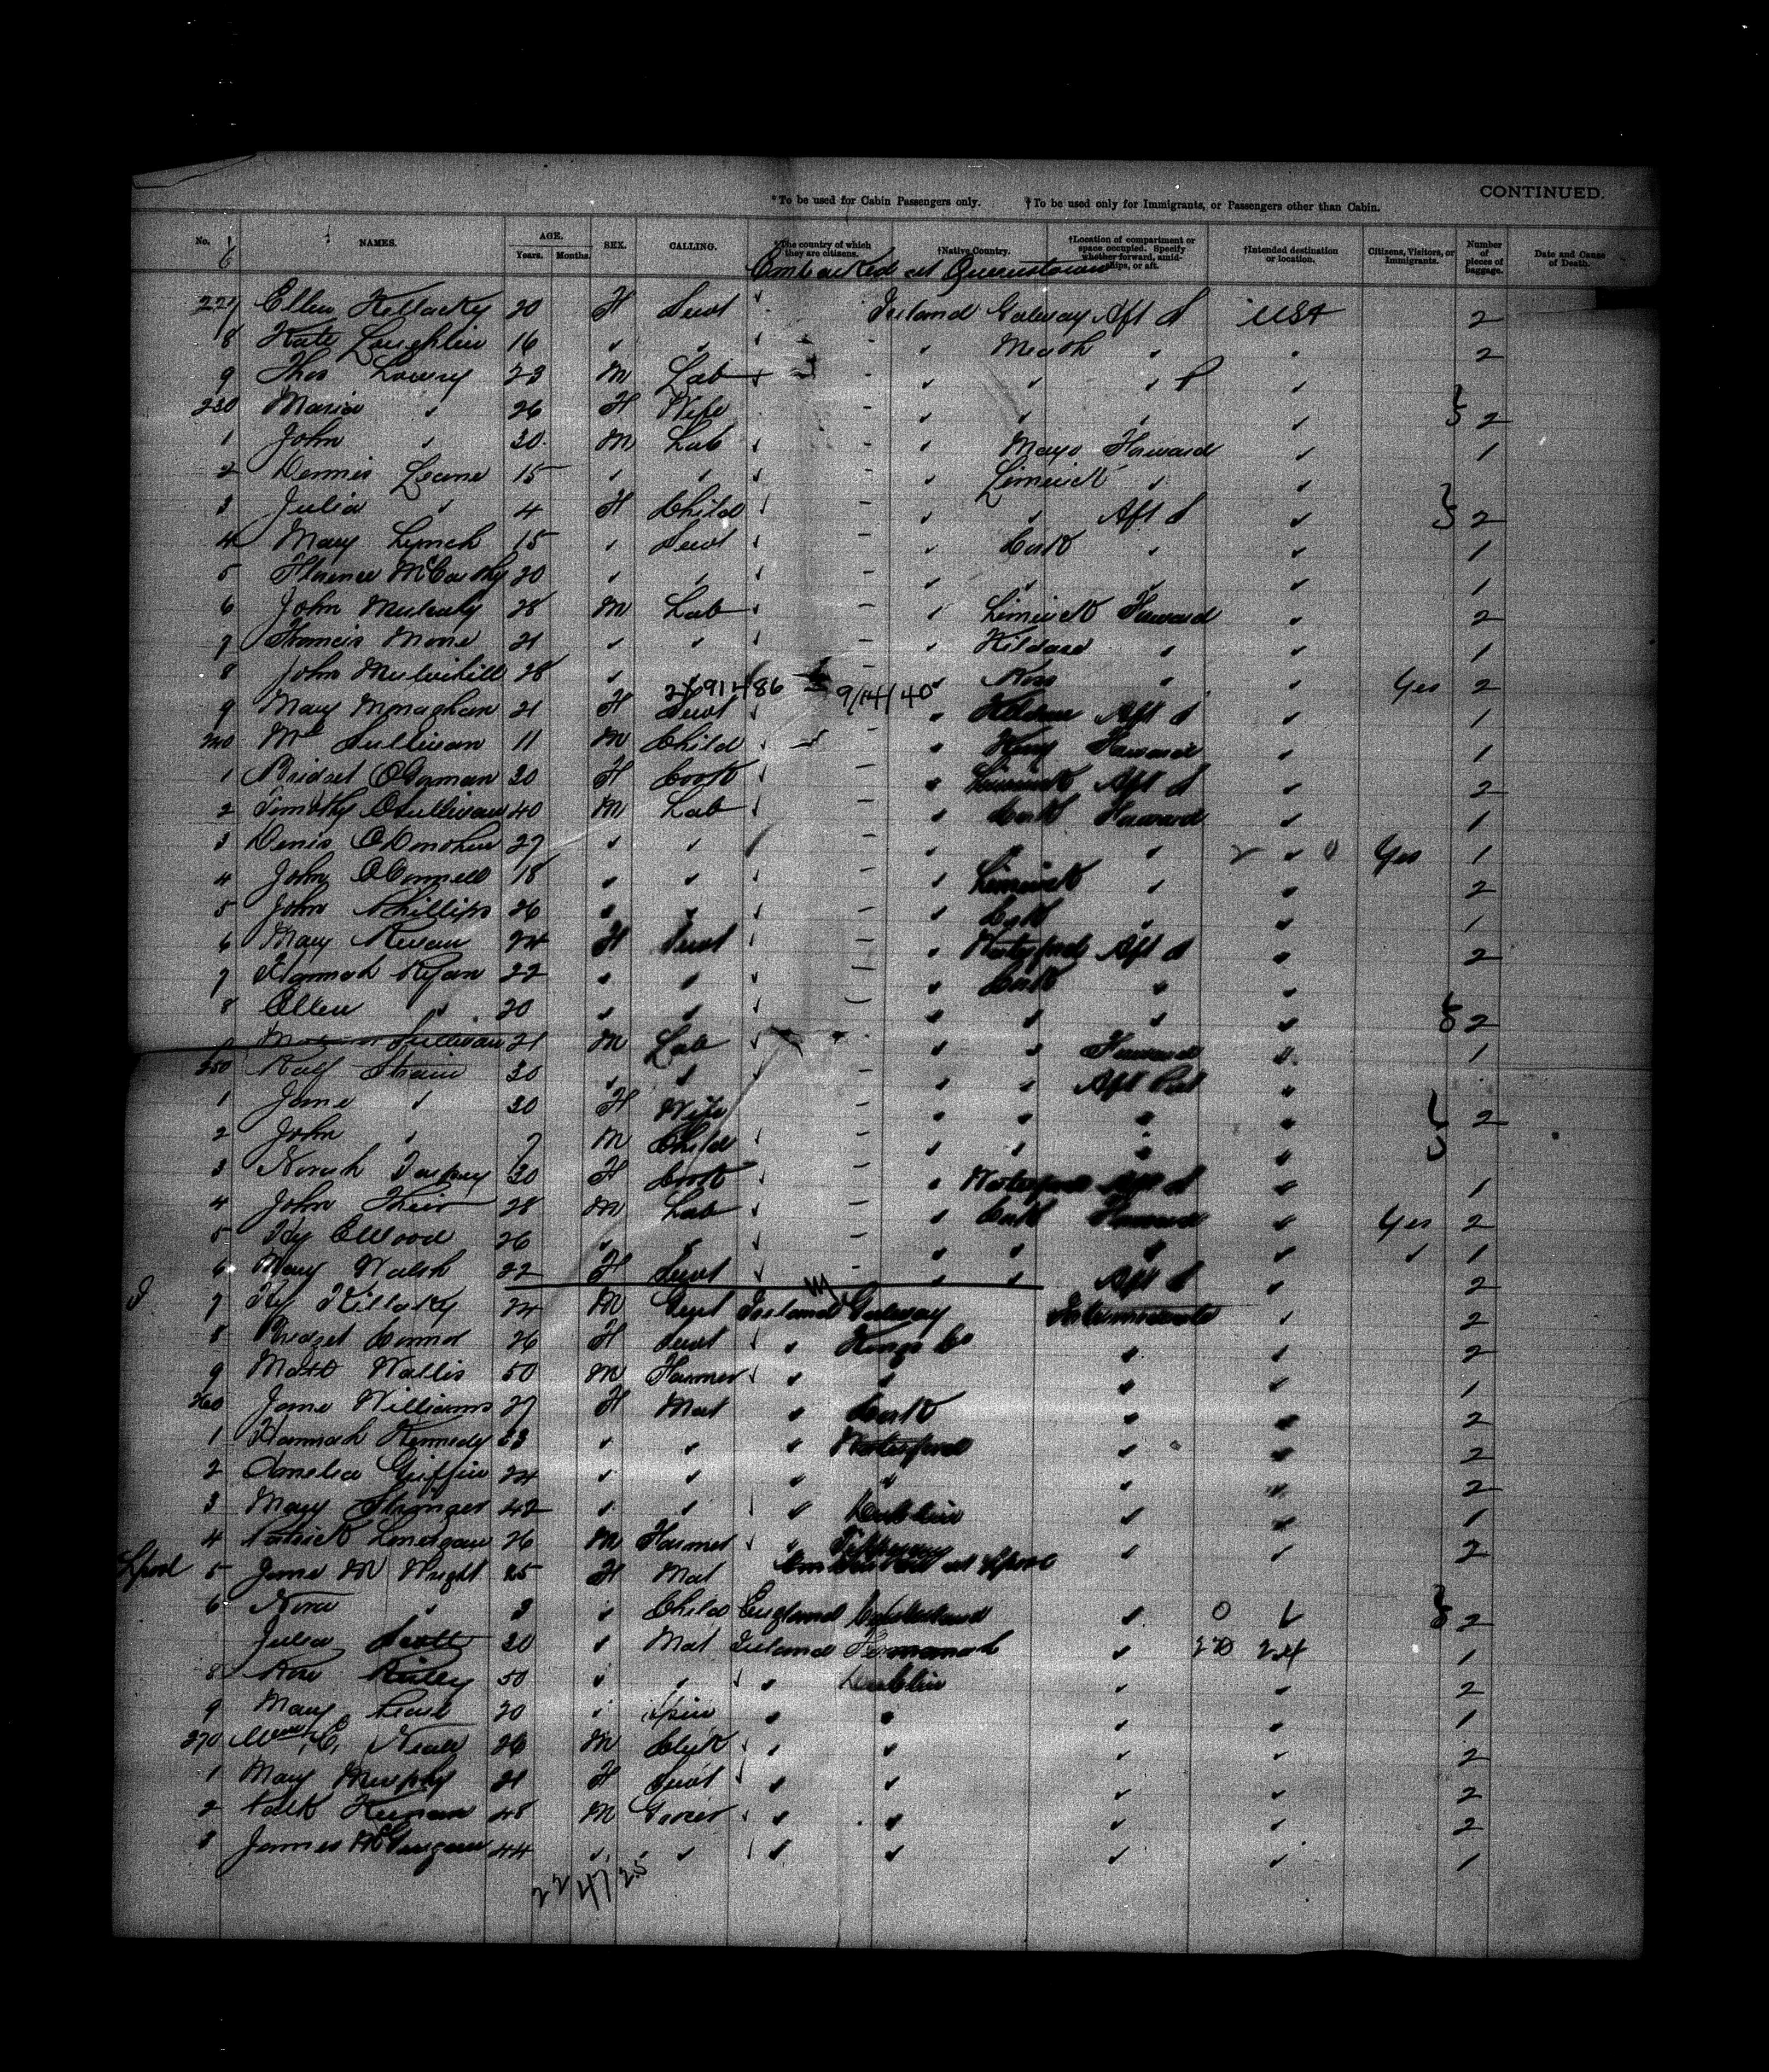 CONTINUED.
*To be used for Cabin Passengers only. †To be used only for Immigrants, or Passengers other than Cabin.
No. NAMES. AGE. Years. Months. SEX. CALLING. *The country of which they are citizens. †Native Country. †Location of compartment or space occupied. Specify whether forward, amidships, or aft. †Intended destination or location. Citizens, Visitors, or Immigrants. Number of pieces of baggage. Date and Cause of Death.
Embarked at Queenstown
227 Ellen Killacky 20 F Servt Ireland Galway Aft USA 2
8 Kate Loughlin 16 " " " Meath " " 2
9 Thos Lowry 23 M Lab " " " "
230 Maria " 26 F Wife " " " " 2
1 John " 30 M Lab " Mayo Forward " 1
2 Dennis Leane 15 " " " Limerick " "
3 Julia " 4 F Child " " Aft " 2
4 Mary Lynch 15 " Servt " Cork " " 1
5 Florence McCarthy 20 " " " " " " 1
6 John Mulcahy 28 M Lab " Limerick Forward " 2
7 Francis Mone 21 " " " Kildare " " 1
8 John Mulvihill 28 " " " " Yes 2
2691486 9/14/40
9 Mary Monaghan 21 F Servt " Kildare Aft " 1
240 Ml Sullivan 11 M Child " Kerry Forward " 1
1 Bridget OGorman 30 F Cook " Limerick Aft " 2
2 Timothy OSullivan 40 M Lab " Cork Forward " 1
3 Denis ODonohue 27 " " " " " " Yes 1
4 John OConnell 18 " " " Limerick " " 2
5 John Phillips 26 " " " Cork " " 1
6 Mary 24 F Servt " Waterford Aft " 2
7 Hannah Ryan 22 " " " Cork " "
8 Ellen " 20 " " " " " " 2
Sullivan 21 M Lab " " Forward " 1
250 30 " " " " Aft "
1 Jane " 30 F Wife " " " " 2
2 John " M Child " " " "
3 Norah 30 F Cook " Waterford Aft " 1
4 John 28 M Lab " Cork Forward " Yes 2
5 Hy Ellwood 26 " " " " " " " 1
6 Mary Walsh 22 F Servt " " Aft " 2
7 Hy Killaky 24 M Gent Ireland Galway Intermediate " 2
8 Bridget Connor 26 F Servt " Kings Co " " 2
9 Matt Wallis 50 M Farmer " " " " 1
260 Jane Williams 27 F Mat " Cork " " 2
1 Hannah Kennedy " " " Waterford " " 2
2 Amelia Griffin 24 " " " " " " 2
3 Mary Stringer 42 " " " Dublin " " 1
4 Patrick Lonergan 26 M Farmer " Tipperary " " 2
Embarked at Lpool
Lpool 5 Jane M Wright 25 F Mat
6 Nora " 3 " Child England Cumberland " 2
Julia Scott 30 " Mat Ireland Fermanagh " 1
8 50 " " " Dublin " " 2
9 Mary 20 " Spin " " " " 1
270 Wm C. Neale 26 M Clerk " " " " 2
1 Mary Murphy 21 F Servt " " " " 2
2 Patk Keenan 48 M Grocer " " " " 2
3 James 44 " " " " " " 1